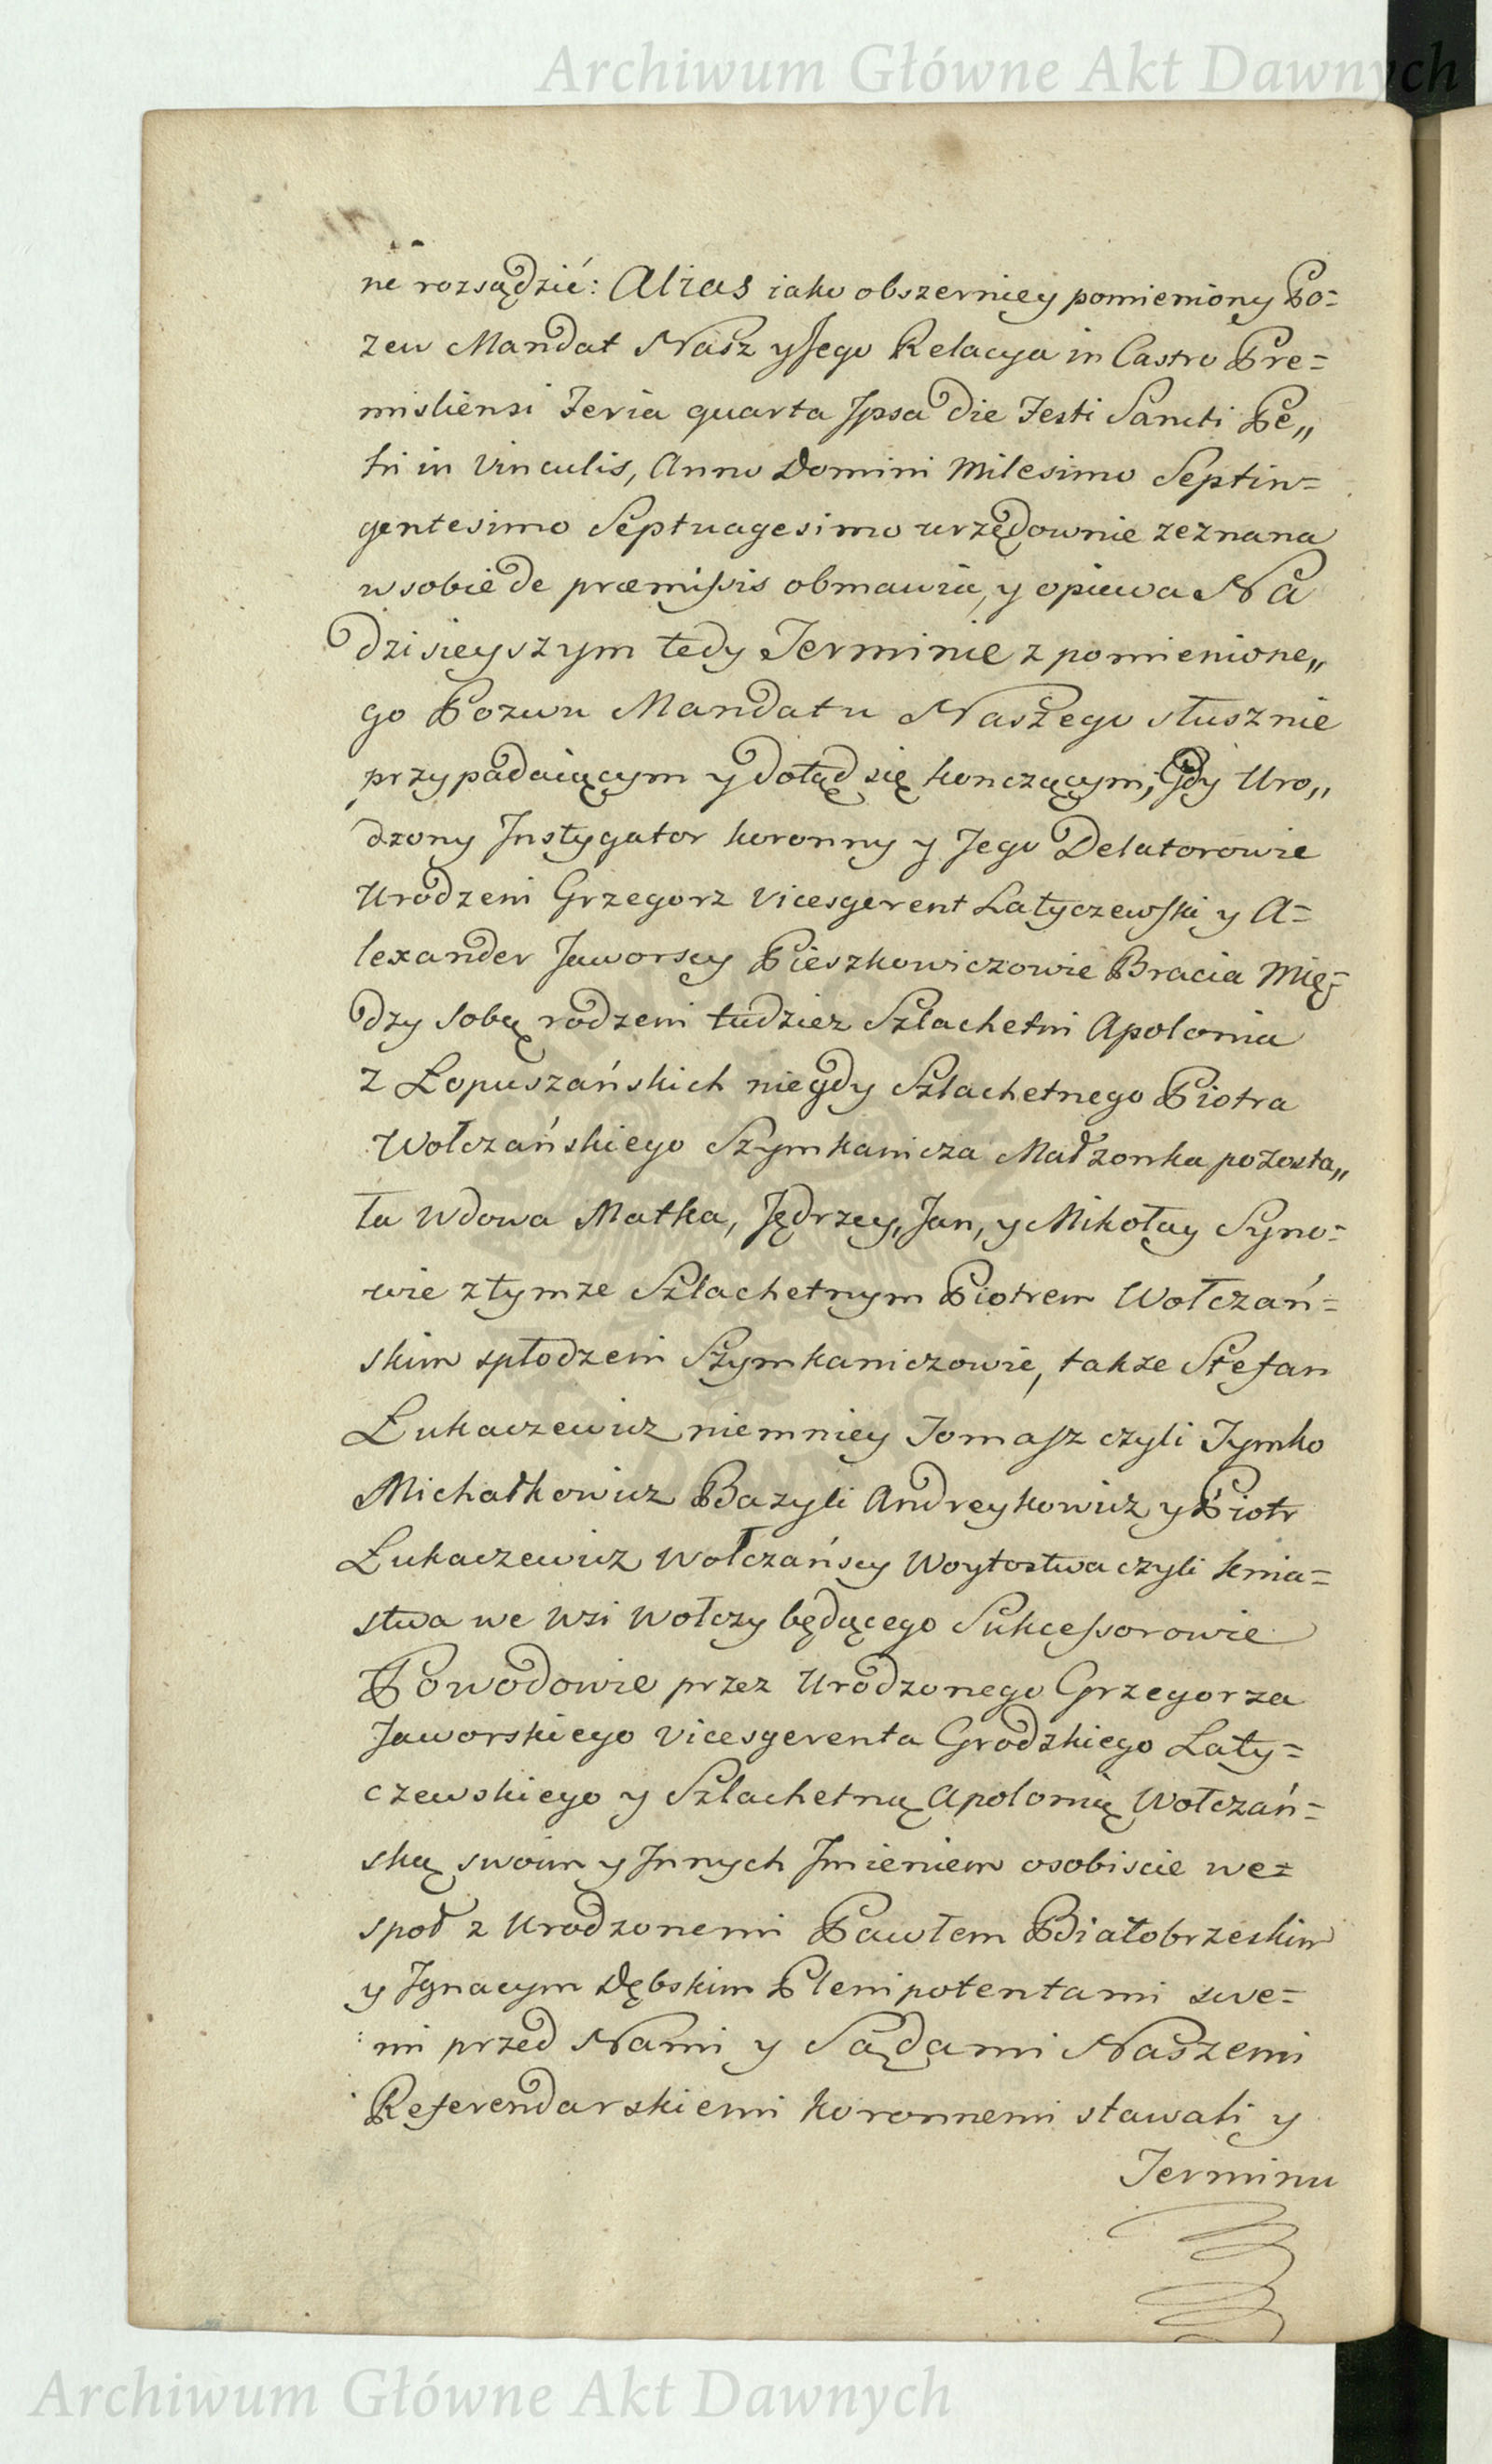 Archiwum Główne Akt Dawnych
ne rozsądzić: Alias iako obszerniey pomieniony Po=
zew Mandat Nasz y Jego Relacya in Castro Pre=
misliensi Feria quarta Ipsa die Festi Sancti Pe„
tri in Vinculis, Anno Domini Milesimo Septin=
gentesimo Septuagesimo urzędownie zeznana
w sobie de præmissis obmawia, y opiewa Na
dzisieyszym tedy Terminie z pomienione„
go Pozwu Mandatu Naszego słusznie
przypadaiącym y dotąd się konczącym, Gdy Uro„
dzony Instygator koronny y Jego Delatorowie
Urodzeni Grzegorz Vicesgerent Latyczewski y A=
lexander Jaworscy Pieszkowiczowie Bracia Mię=
dzy sobą rodzeni tudziez Szlachetni Apolonia
z Łopuszańskich niegdy Szlachetnego Piotra
Wołczańskiego Szymkanicza Małzonka pozosta„
ła Wdowa Matka, Jędrzey, Jan, y Mikołay Syno=
wie z tymze Szlachetnym Piotrem Wołczań=
skim spłodzeni Szymkaniczowie, takze Stefan
Łukaczewicz niemniey Tomasz czyli Tymko
Michałkowicz Bazyli Andreykowicz y Piotr
Łukaczewicz Wołczańscy Woytostwa czyli knia=
stwa we Wsi Wołczy będącego Sukcessorowie
Powodowie przez Urodzonego Grzegorza
Jaworskiego Vicesgerenta Grodzkiego Laty=
czewskiego y Szlachetną Apolonią Wołczań=
ską swoim y Innych Imieniem osobiscie we=
społ z Urodzonemi Pawłem Białobrzeskim
y Ignacym Dębskim Plenipotentami swe=
mi przed Nami y Sądami Naszemi
Referendarskiemi koronnemi stawali y
Terminu
Archiwum Główne Akt Dawnych